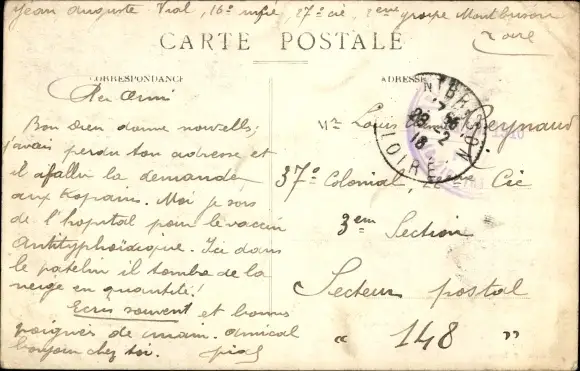 Jean Auguste Vial, 16e infie, 27e cie, 2eme groupe Montbrison
Loire
CARTE POSTALE
CORRESPONDANCE
ADRESSE
Cher Ami
Bon Dieu donne nouvelles,
j'avais perdu ton adresse et
il a fallu la demander
aux Kopains. Moi je sors
de l'hopital pour le vaccin
Antityphoïdique. Ici dans
le patelin il tombe de la
neige en quantité!
Ecris souvent et bonne
poignée de main. amical
bonjour chez toi.
Mr Louis Reynaud
37e Colonial, 22eme Cie
3em Section
Secteur postal
" 148 "
MONTBRISON
LOIRE